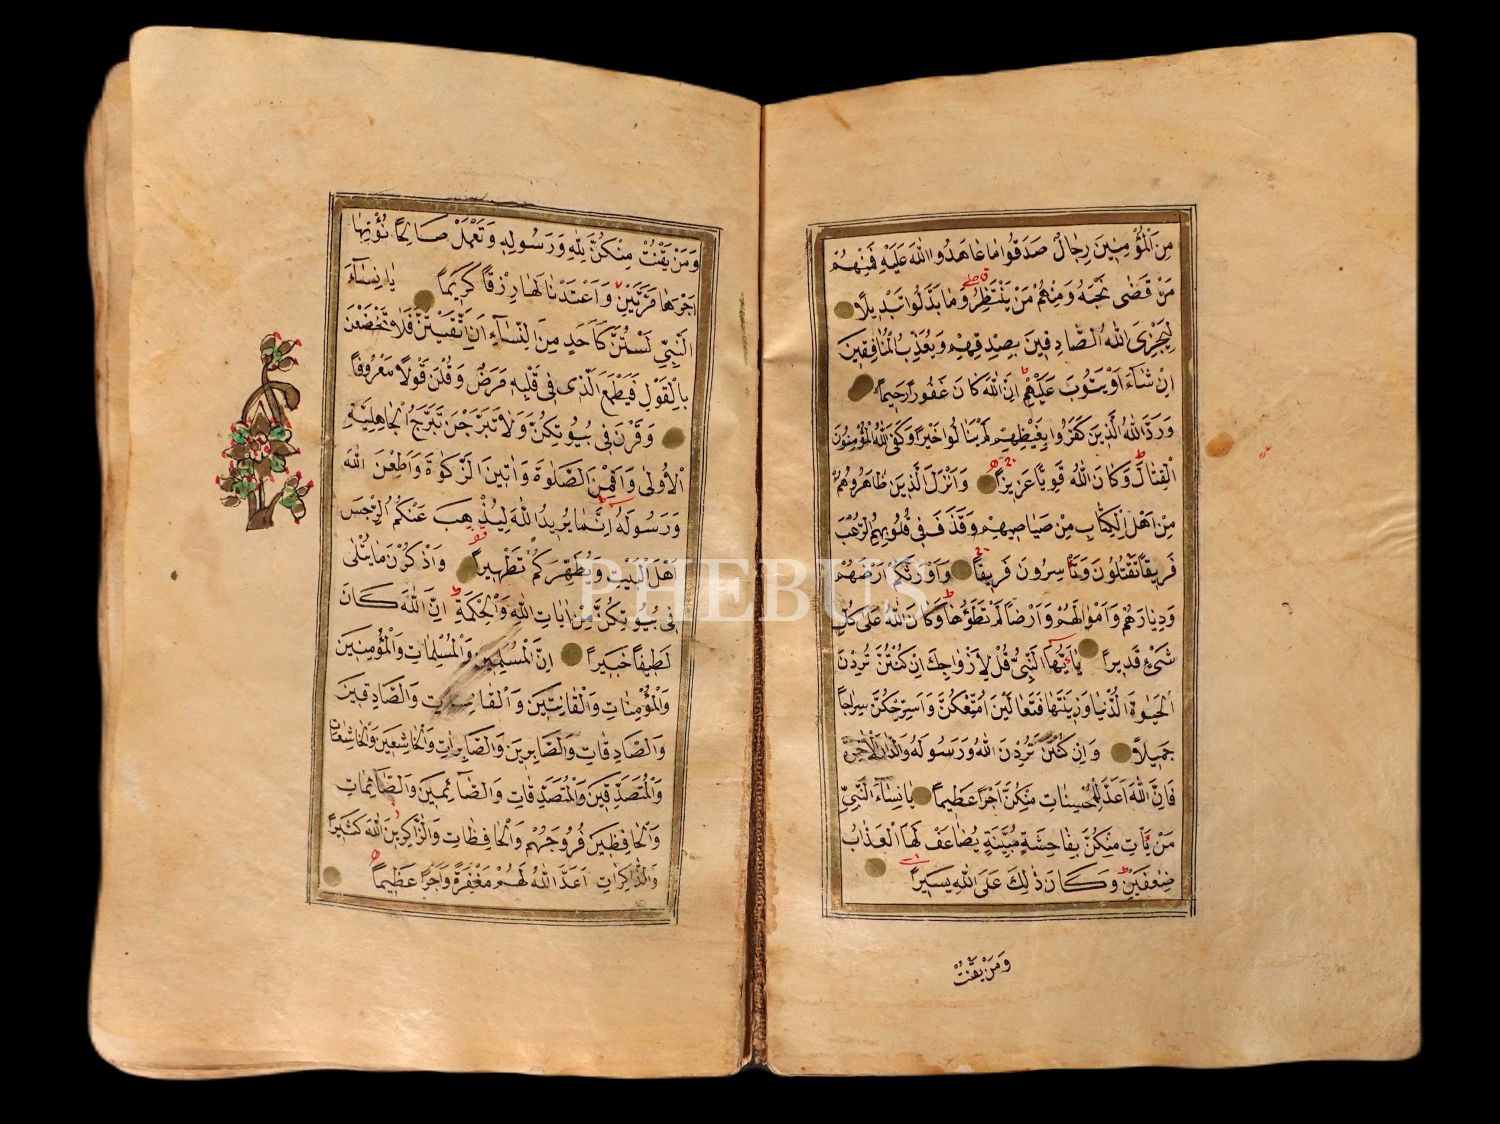 مِنَ الْمُؤْمِنِينَ رِجَالٌ صَدَقُوا مَا عَاهَدُوا اللّٰهَ عَلَيْهِ فَمِنْهُمْ
مَنْ قَضٰى نَحْبَهُ وَمِنْهُمْ مَنْ يَنْتَظِرُ وَمَا بَدَّلُوا تَبْدِيلًا
لِيَجْزِىَ اللّٰهُ الصَّادِقِينَ بِصِدْقِهِمْ وَيُعَذِّبَ الْمُنَافِقِينَ
اِنْ شَاءَ اَوْ يَتُوبَ عَلَيْهِمْ اِنَّ اللّٰهَ كَانَ غَفُورًا رَحِيمًا
وَرَدَّ اللّٰهُ الَّذِينَ كَفَرُوا بِغَيْظِهِمْ لَمْ يَنَالُوا خَيْرًا وَكَفَى اللّٰهُ الْمُؤْمِنِينَ
الْقِتَالَ وَكَانَ اللّٰهُ قَوِيًّا عَزِيزًا وَاَنْزَلَ الَّذِينَ ظَاهَرُوهُمْ
مِنْ اَهْلِ الْكِتَابِ مِنْ صَيَاصِيهِمْ وَقَذَفَ فِى قُلُوبِهِمُ الرُّعْبَ
فَرِيقًا تَقْتُلُونَ وَتَأْسِرُونَ فَرِيقًا وَاَوْرَثَكُمْ اَرْضَهُمْ
وَدِيَارَهُمْ وَاَمْوَالَهُمْ وَاَرْضًا لَمْ تَطَؤُهَا وَكَانَ اللّٰهُ عَلٰى كُلِّ
شَىْءٍ قَدِيرًا يَا اَيُّهَا النَّبِىُّ قُلْ لِاَزْوَاجِكَ اِنْ كُنْتُنَّ تُرِدْنَ
الْحَيٰوةَ الدُّنْيَا وَزِينَتَهَا فَتَعَالَيْنَ اُمَتِّعْكُنَّ وَاُسَرِّحْكُنَّ سَرَاحًا
جَمِيلًا وَاِنْ كُنْتُنَّ تُرِدْنَ اللّٰهَ وَرَسُولَهُ وَالدَّارَ الْاٰخِرَةَ
فَاِنَّ اللّٰهَ اَعَدَّ لِلْمُحْسِنَاتِ مِنْكُنَّ اَجْرًا عَظِيمًا يَا نِسَاءَ النَّبِىِّ
مَنْ يَأْتِ مِنْكُنَّ بِفَاحِشَةٍ مُبَيِّنَةٍ يُضَاعَفْ لَهَا الْعَذَابُ
ضِعْفَيْنِ وَكَانَ ذٰلِكَ عَلَى اللّٰهِ يَسِيرًا
وَمَنْ يَقْنُتْ
وَمَنْ يَقْنُتْ مِنْكُنَّ لِلّٰهِ وَرَسُولِهِ وَتَعْمَلْ صَالِحًا نُؤْتِهَا
اَجْرَهَا مَرَّتَيْنِ وَاَعْتَدْنَا لَهَا رِزْقًا كَرِيمًا يَا نِسَاءَ
النَّبِىِّ لَسْتُنَّ كَاَحَدٍ مِنَ النِّسَاءِ اِنِ اتَّقَيْتُنَّ فَلَا تَخْضَعْنَ
بِالْقَوْلِ فَيَطْمَعَ الَّذِى فِى قَلْبِهِ مَرَضٌ وَقُلْنَ قَوْلًا مَعْرُوفًا
وَقَرْنَ فِى بُيُوتِكُنَّ وَلَا تَبَرَّجْنَ تَبَرُّجَ الْجَاهِلِيَّةِ
الْاُولٰى وَاَقِمْنَ الصَّلٰوةَ وَاٰتِينَ الزَّكٰوةَ وَاَطِعْنَ اللّٰهَ
وَرَسُولَهُ اِنَّمَا يُرِيدُ اللّٰهُ لِيُذْهِبَ عَنْكُمُ الرِّجْسَ
اَهْلَ الْبَيْتِ وَيُطَهِّرَكُمْ تَطْهِيرًا وَاذْكُرْنَ مَا يُتْلٰى
فِى بُيُوتِكُنَّ مِنْ اٰيَاتِ اللّٰهِ وَالْحِكْمَةِ اِنَّ اللّٰهَ كَانَ
لَطِيفًا خَبِيرًا اِنَّ الْمُسْلِمِينَ وَالْمُسْلِمَاتِ وَالْمُؤْمِنِينَ
وَالْمُؤْمِنَاتِ وَالْقَانِتِينَ وَالْقَانِتَاتِ وَالصَّادِقِينَ
وَالصَّادِقَاتِ وَالصَّابِرِينَ وَالصَّابِرَاتِ وَالْخَاشِعِينَ وَالْخَاشِعَاتِ
وَالْمُتَصَدِّقِينَ وَالْمُتَصَدِّقَاتِ وَالصَّائِمِينَ وَالصَّائِمَاتِ
وَالْحَافِظِينَ فُرُوجَهُمْ وَالْحَافِظَاتِ وَالذَّاكِرِينَ اللّٰهَ كَثِيرًا
وَالذَّاكِرَاتِ اَعَدَّ اللّٰهُ لَهُمْ مَغْفِرَةً وَاَجْرًا عَظِيمًا
PHEBUS